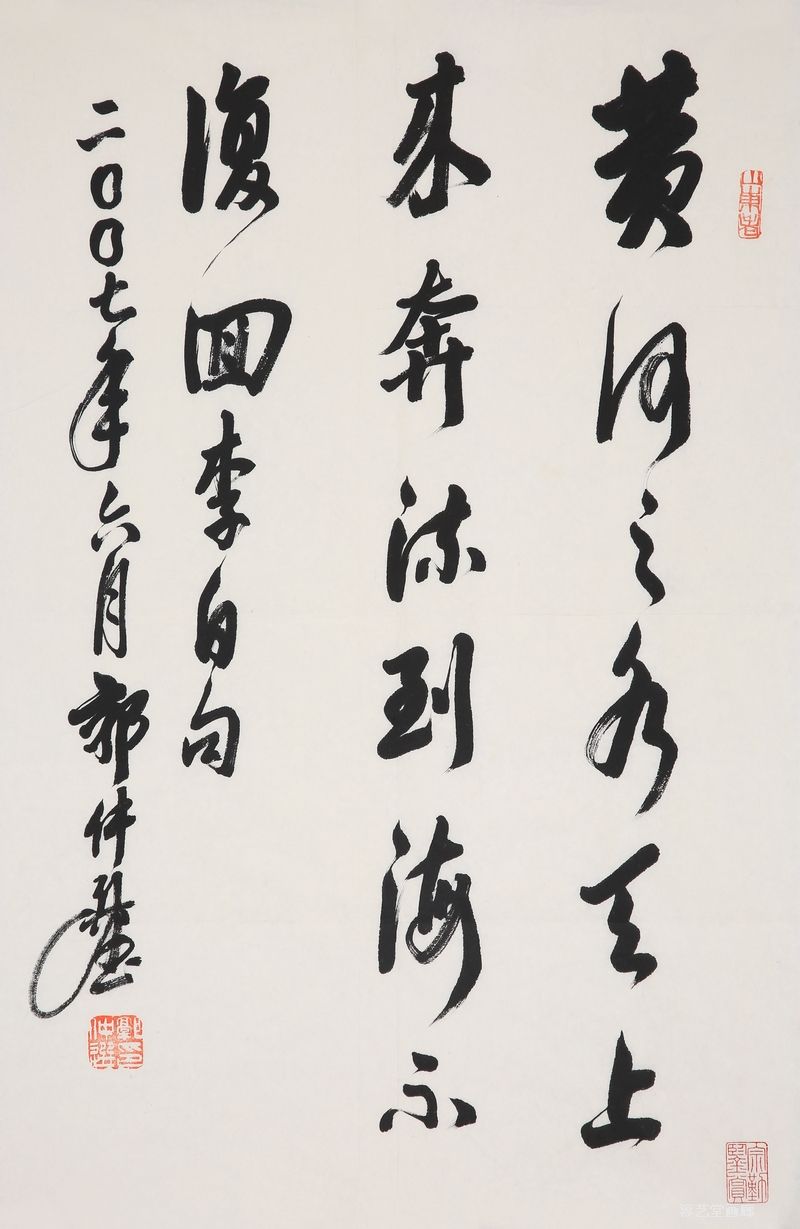 黄河之水天上
来奔流到海不
復回李白句
二〇〇七年六月郭仲選
郭印仲選